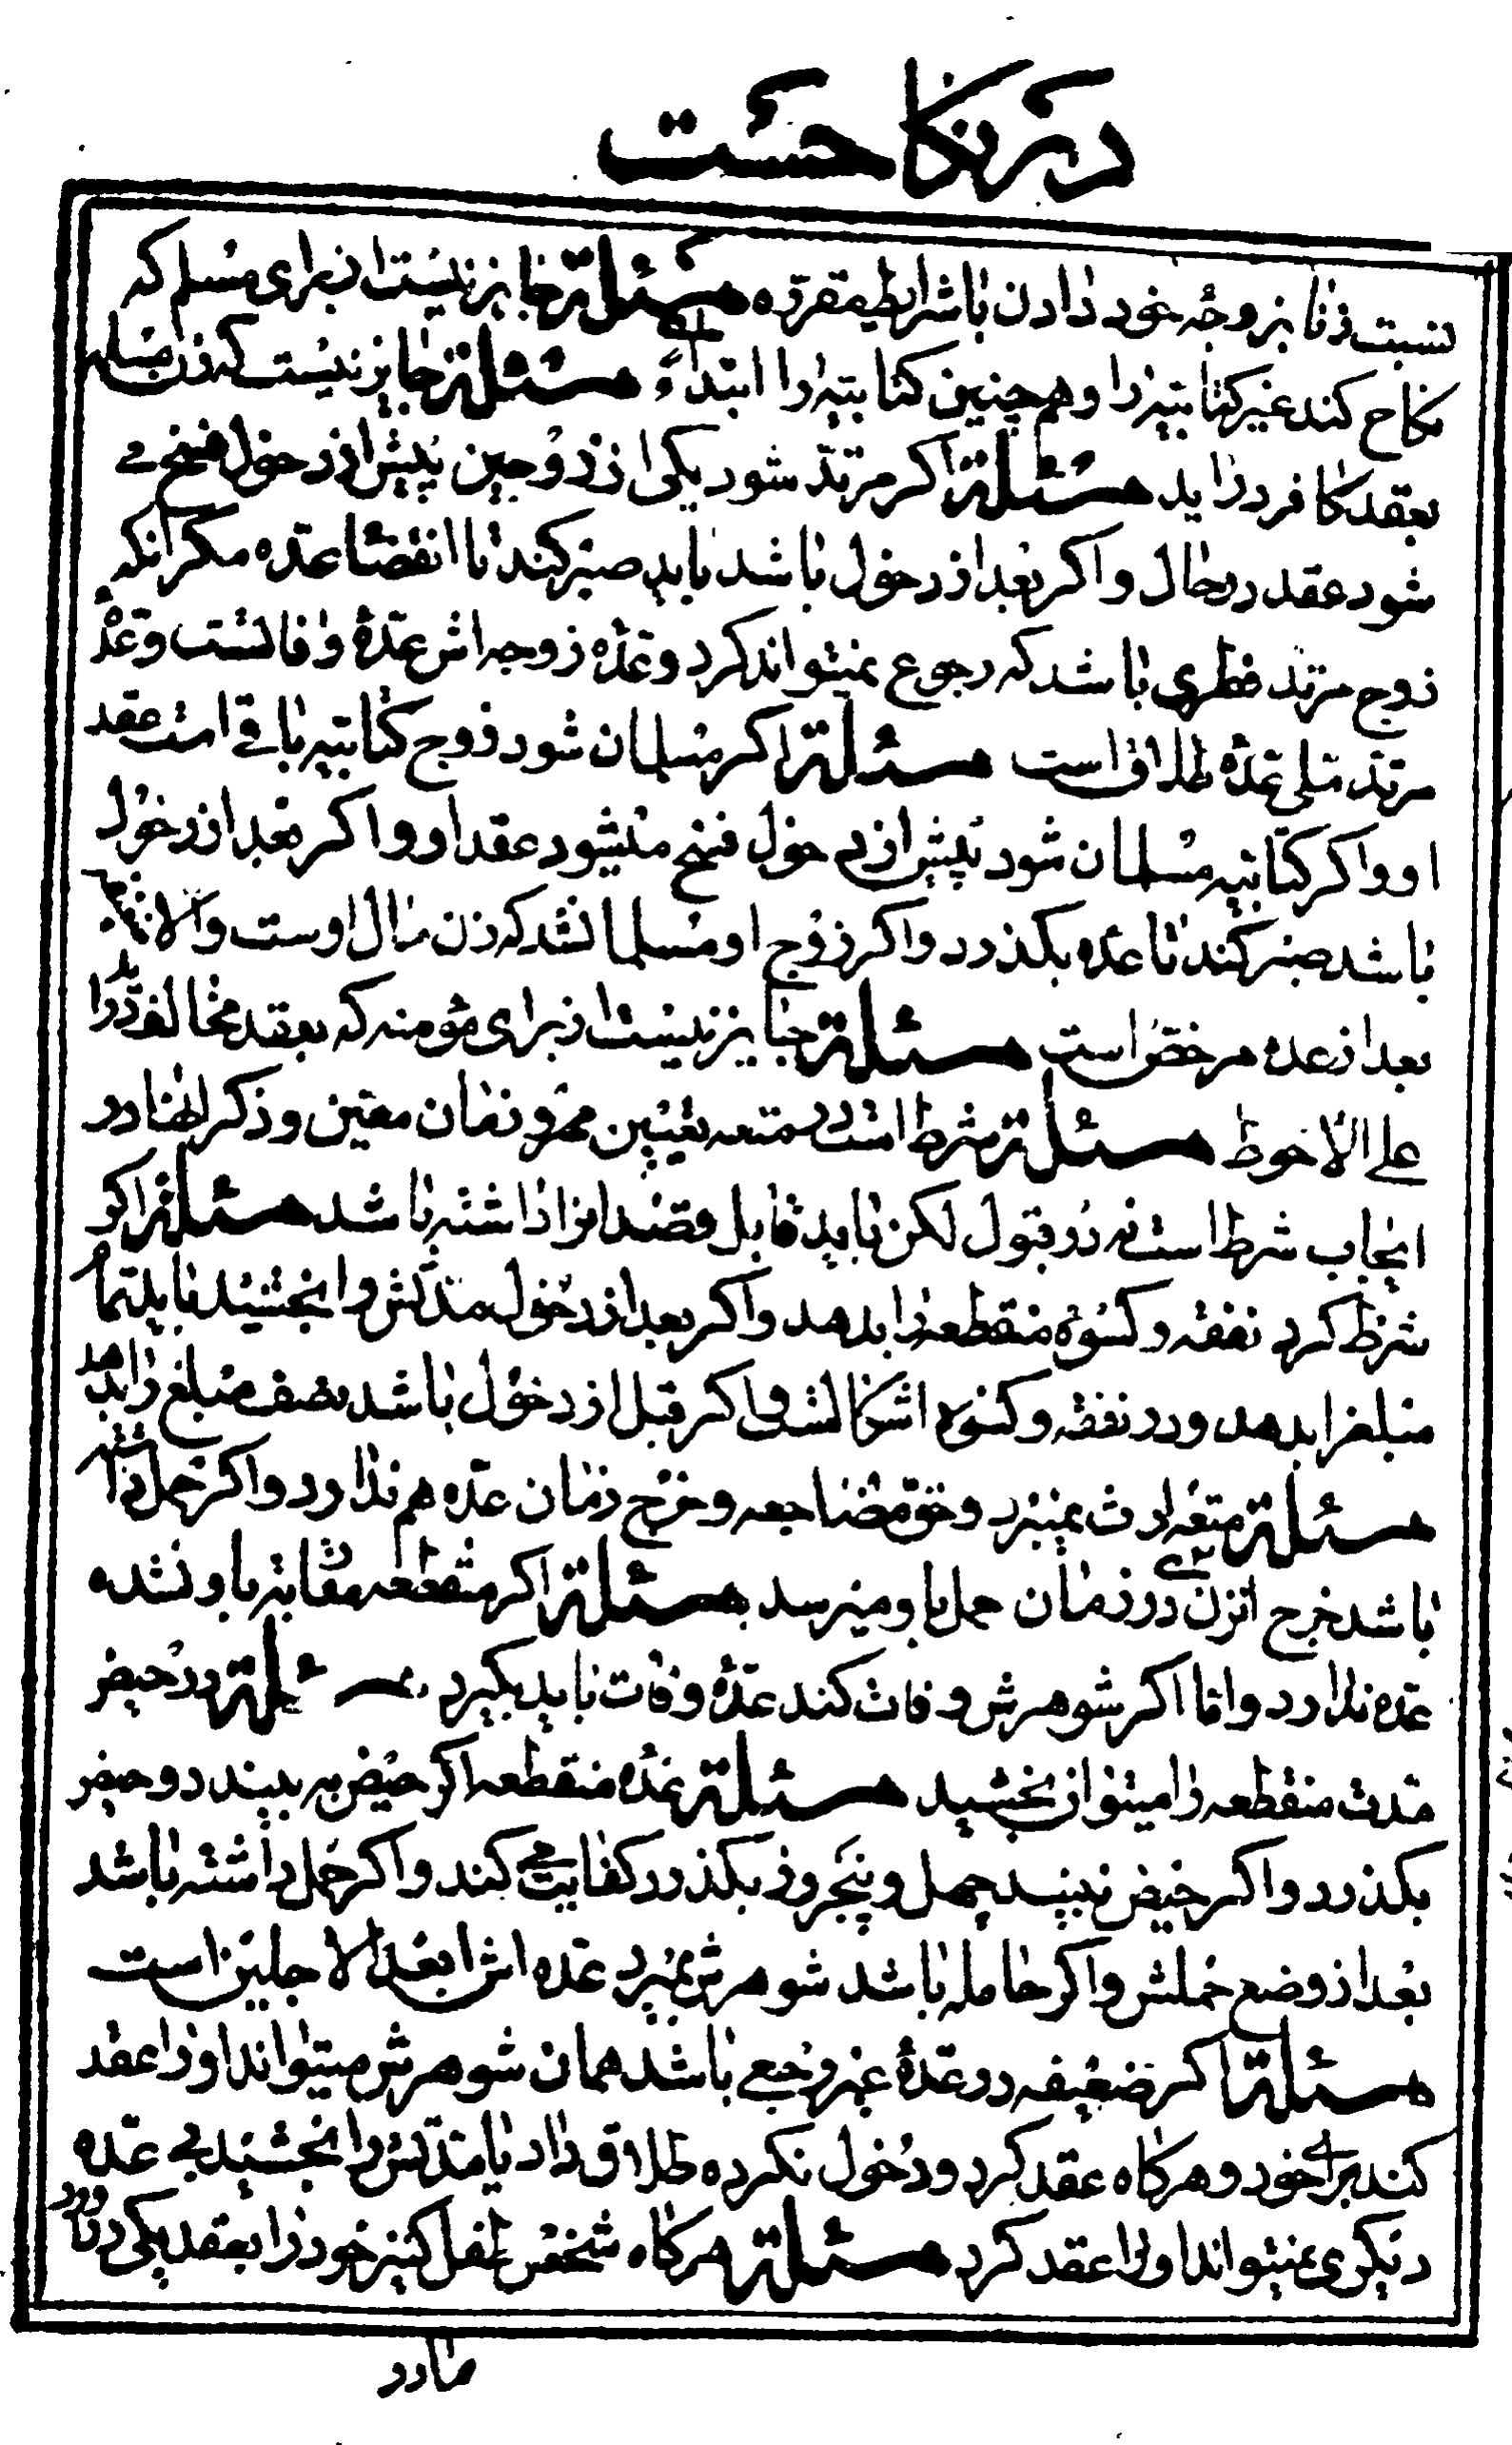 در نکاحست
نسبت زنا بزوجهٔ خود دادن با شرایط مقرّره مسئلة جایز نیست از برای مسلم که
نکاح کند غیر کتابیّه را و همچنین کتابیّه را ابتداءً مسئلة جایز نیست که زن مسلمه
بعقد کافر درآید مسئلة اگر مرتدّ شود یکی از زوجین پیش از دخول فسخ می
شود عقد در حال و اگر بعد از دخول باشد باید صبر کند تا انقضاء عدّه مگر آنکه
زوج مرتدّ فطری باشد که رجوع نمیتواند کرد و عدّه زوجه اش عدّهٔ وفاتست و عدّهٔ
مرتدّ ملی عدّهٔ طلاق است مسئلة اگر مسلمان شود زوج کتابیّه باقی است عقد
او و اگر کتابیّه مسلمان شود پیش از دخول فسخ میشود عقد او و اگر بعد از دخول
باشد صبر کند تا عدّه بگذرد و اگر زوج او مسلمان شد که زن مال اوست و الا
بعد از عدّه مرخّص است مسئلة جایز نیست از برای مؤمنه که بعقد مخالف درآید
علی الاحوط مسئلة شرط است در متعه تعیین مهر و زمان معیّن و ذکر اینها در
ایجاب شرط است نه در قبول لکن باید قابل قصد انرا داشته باشد مسئلة اگر
شرط کرد نفقه و کسوهٔ منقطعه را بدهد و اگر بعد از دخول مدّتش را بخشید باید تمام
مبلغ را بدهد و در نفقه و کسوه اشکالست و اگر قبل از دخول باشد نصف مبلغ را بدهد
مسئلة متعه ارث نمیبرد و حق مضاجعه و خرج زمان عدّه هم ندارد و اگر حمل داشته
باشد خرج انزن در زمان حمل باو میرسد مسئلة اگر منقطعه مقابته باو نشده
عدّه ندارد و امّا اگر شوهرش وفات کند عدّهٔ وفات باید بگیرد مسئلة در حیض
مدّت منقطعه را میتوان بخشید مسئلة عدّهٔ منقطعه اگر حیض به بیند دو حیض
بگذرد و اگر حیض نبیند چهل و پنجروز بگذرد کفایت می کند و اگر حمل داشته باشد
بعد از وضع حملش و اگر حامله باشد شوهرش بمیرد عدّه اش ابعد الاجلین است
مسئلة اگر ضعیفه در عدّهٔ غیر رجعی باشد همان شوهرش میتواند او را عقد
کند برای خود و هرگاه عقد کرد و دخول نکرده طلاق داد یا مدّتش را بخشید بی عدّه
دیگری نمیتواند او را عقد کرد مسئلة هرگاه شخص طفل کنیز خود را بعقد یکی در